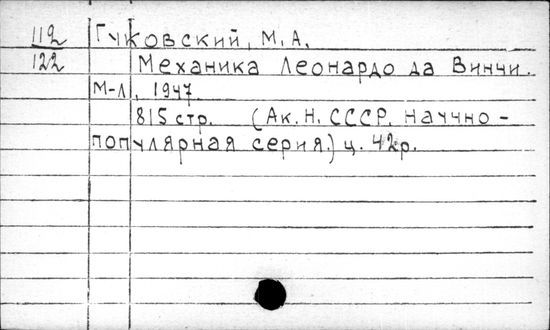 112 Гуковский, М.А.
122 Механика Леонардо да Винчи.
М-Л, 1947.
815 стр. (Ак. Н. СССР. Научно-
популярная серия.) ц. 42р.